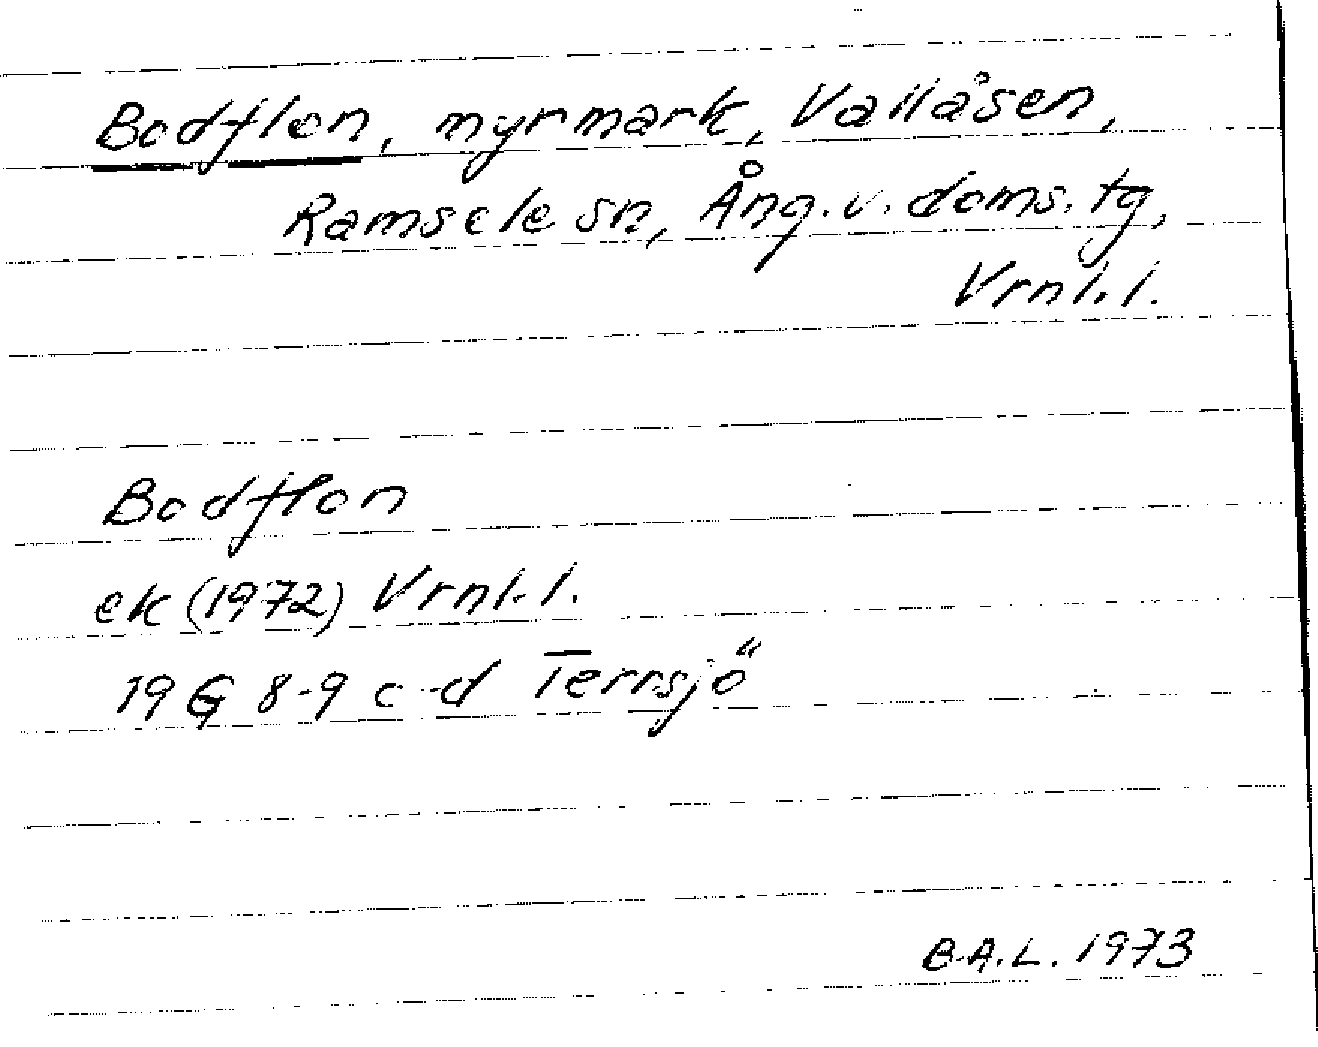 Bodflon, myrmark, Vallåsen,
Ramsele sn, Ång. v. doms. tg,
Vrnl. l.
Bodflon
ek (1972) Vrnl. l.
19 G 8-9 c-d Terrsjö
B.A.L. 1973